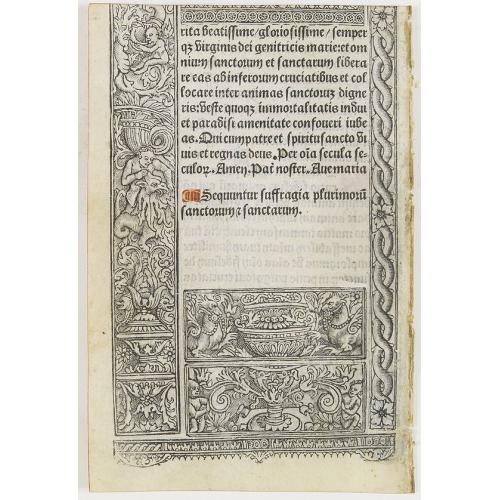 rita beatissime/gloriosissime/semper
qꝫ virginis dei genitricis marie:et om
nium sanctorum et sanctarum libera
re eas ab inferorum cruciatibus et col
locare inter animas sanctorum digne
ris: veste quoqꝫ immortalitatis indui
et paradisi amenitate confoveri iube
as. Qui cum patre et spiritu sancto vi
vis et regnas deus. Per oīa secula se-
culoꝝ. Amen. Pat̄ noster. Ave maria
Sequuntur suffragia plurimorū
sanctorum ⁊ sanctarum.